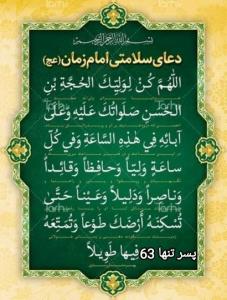 بسم الله الرحمن الرحیم
دعای سلامتی امام زمان (عج)
اَللّٰهُمَّ كُنْ لِوَلِيِّكَ الْحُجَّةِ بْنِ
الْحَسَنِ صَلَوَاتُكَ عَلَيْهِ وَعَلَى
آبَائِهِ فِي هَذِهِ السَّاعَةِ وَفِي كُلِّ
سَاعَةٍ وَلِيّاً وَحَافِظاً وَقَائِداً
وَنَاصِراً وَدَلِيلاً وَعَيْناً حَتَّى
تُسْكِنَهُ أَرْضَكَ طَوْعاً وَتُمَتِّعَهُ
فِيهَا طَوِيلاً
پسر تنها 63